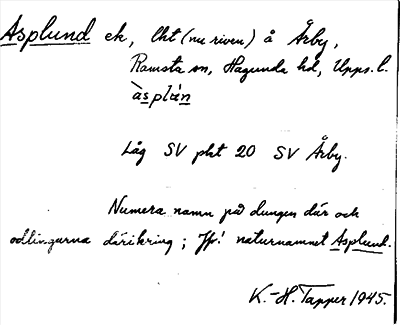 Asplund ek, lht (nu riven) å Årby,
Ramsta sn, Hagunda hd, Upps. l.
àsplún
Låg SV pkt 20 SV Årby.
Numera namn på dungen där och
odlingarna däríkring; Jfr! naturnamnet Asplund.
K.-H. Tapper 1945.